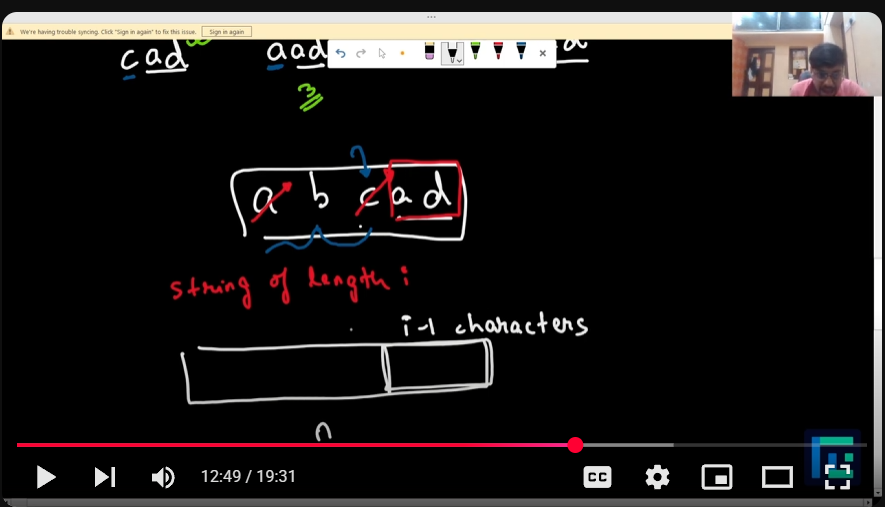 We're having trouble syncing. Click "Sign in again" to fix this issue. Sign in again
cad aad
3
a b c a d
string of length i
i-1 characters
n
12:49 / 19:31
CC